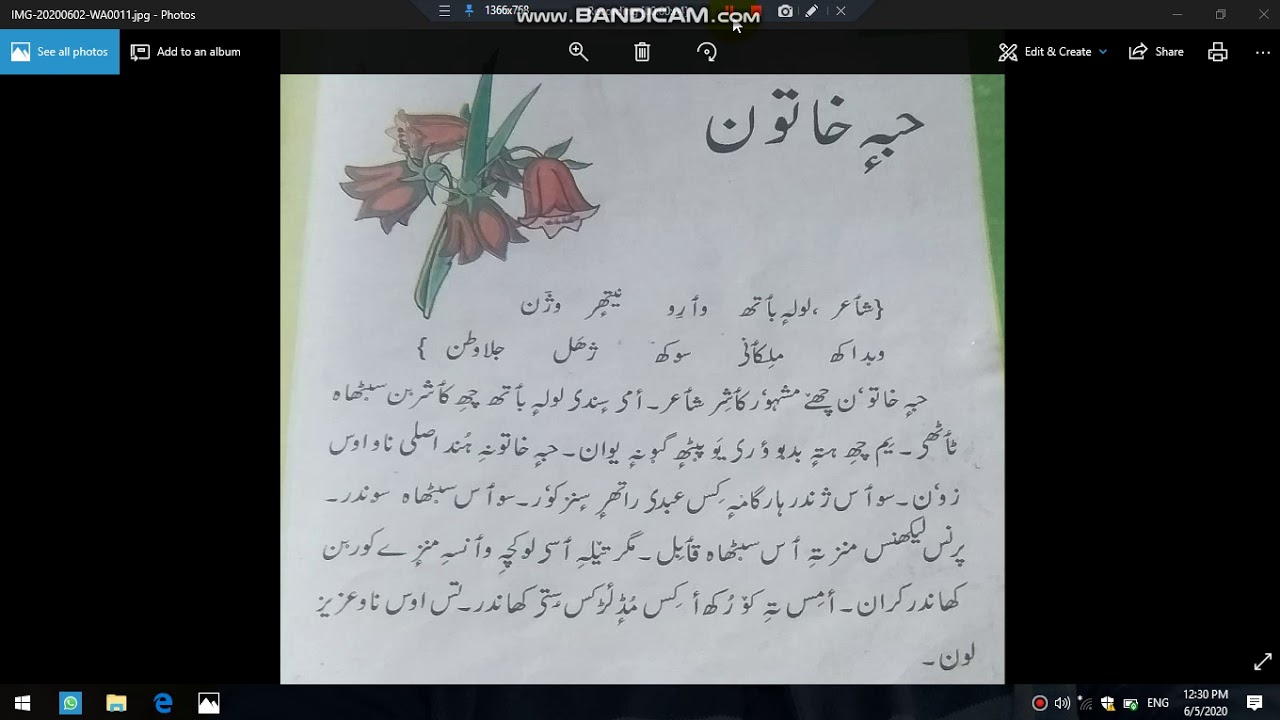 IMG-20200602-WA0011.jpg - Photos
1366x768
www.BANDICAM.com
See all photos
Add to an album
Edit & Create
Share
حبہٕ خاتون
{شٲعر ،لولہٕ بٲتھ وٲرِو نیتھٕر وژَن
وبداکھ مِلکٲنی سوکھ ژھَل جلاوطن }
حبہٕ خاتوٗن چھےٚ مشہوٗر کٲشِر شٲعر۔ أمۍ سٕندۍ لولہٕ بٲتھ چھِ کٲشرٮ۪ن سٮ۪ٹھاہ
ٹٲٹھۍ۔ یِم چھِ ہتہٕ بدٮ۪و ؤری یَو پٮ۪ٹھٕ گٮ۪ونہٕ یوان۔ حبہٕ خاتونہِ ہُند اصلی ناو اوس
زوٗن۔ سۅ ٲس ژندرہارگامہٕ کِس عبدی راتھرٕ سٕنز کوٗر۔ سۅ ٲس سٮ۪ٹھاہ سوندر۔
پرنس لیکھنس منز تہِ ٲس سٮ۪ٹھاہ قٲبِل۔ مگر تیٚلہِ ٲسۍ لۅکچہِ وٲنسہِ منزٕے کورٮ۪ن
کھاندر کران۔ أمِس تہِ کوٚرُکھ أکِس مُڈٕ لٔڑکس سٟتۍ کھاندر۔ تس اوس ناو عزیز
لون۔
ENG
12:30 PM
6/5/2020